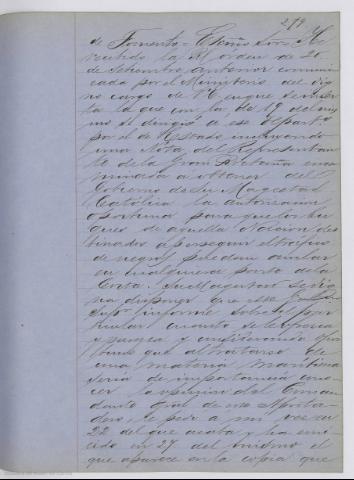 279
de Fomento = Excmo Sor = He
recibido la Rl orden de 20
de Setiembre anterior comuni
cada por el Ministerio del dig
no cargo de V. E. en que se inser
ta la que con fha 19 del mis
mo se dirigió a ese Departo
por el de Estado incluyendo
una Nota del Representan
te de la Gran Bretaña enca
minada a obtener del
Gobierno de Su Magestad
Católica la autorizacion
oportuna para que los bu
ques de aquella Nacion des
tinados a perseguir el tráfico
de negros puedan anclar
en cualquiera parte de la
Costa. Su Magestad se dig
na disponer que este
informe sobre el par
ticular cuanto se le ofrezca
y parezca y considerando yo
que al tratarse de
una materia maritima
seria de importancia cono
cer la opinion del Coman
dante Gral de este Aposta
dero, le pedí a mi vez en
22 del que acaba y ha emi
tido en 27 del mismo el
que aparece en la copia que